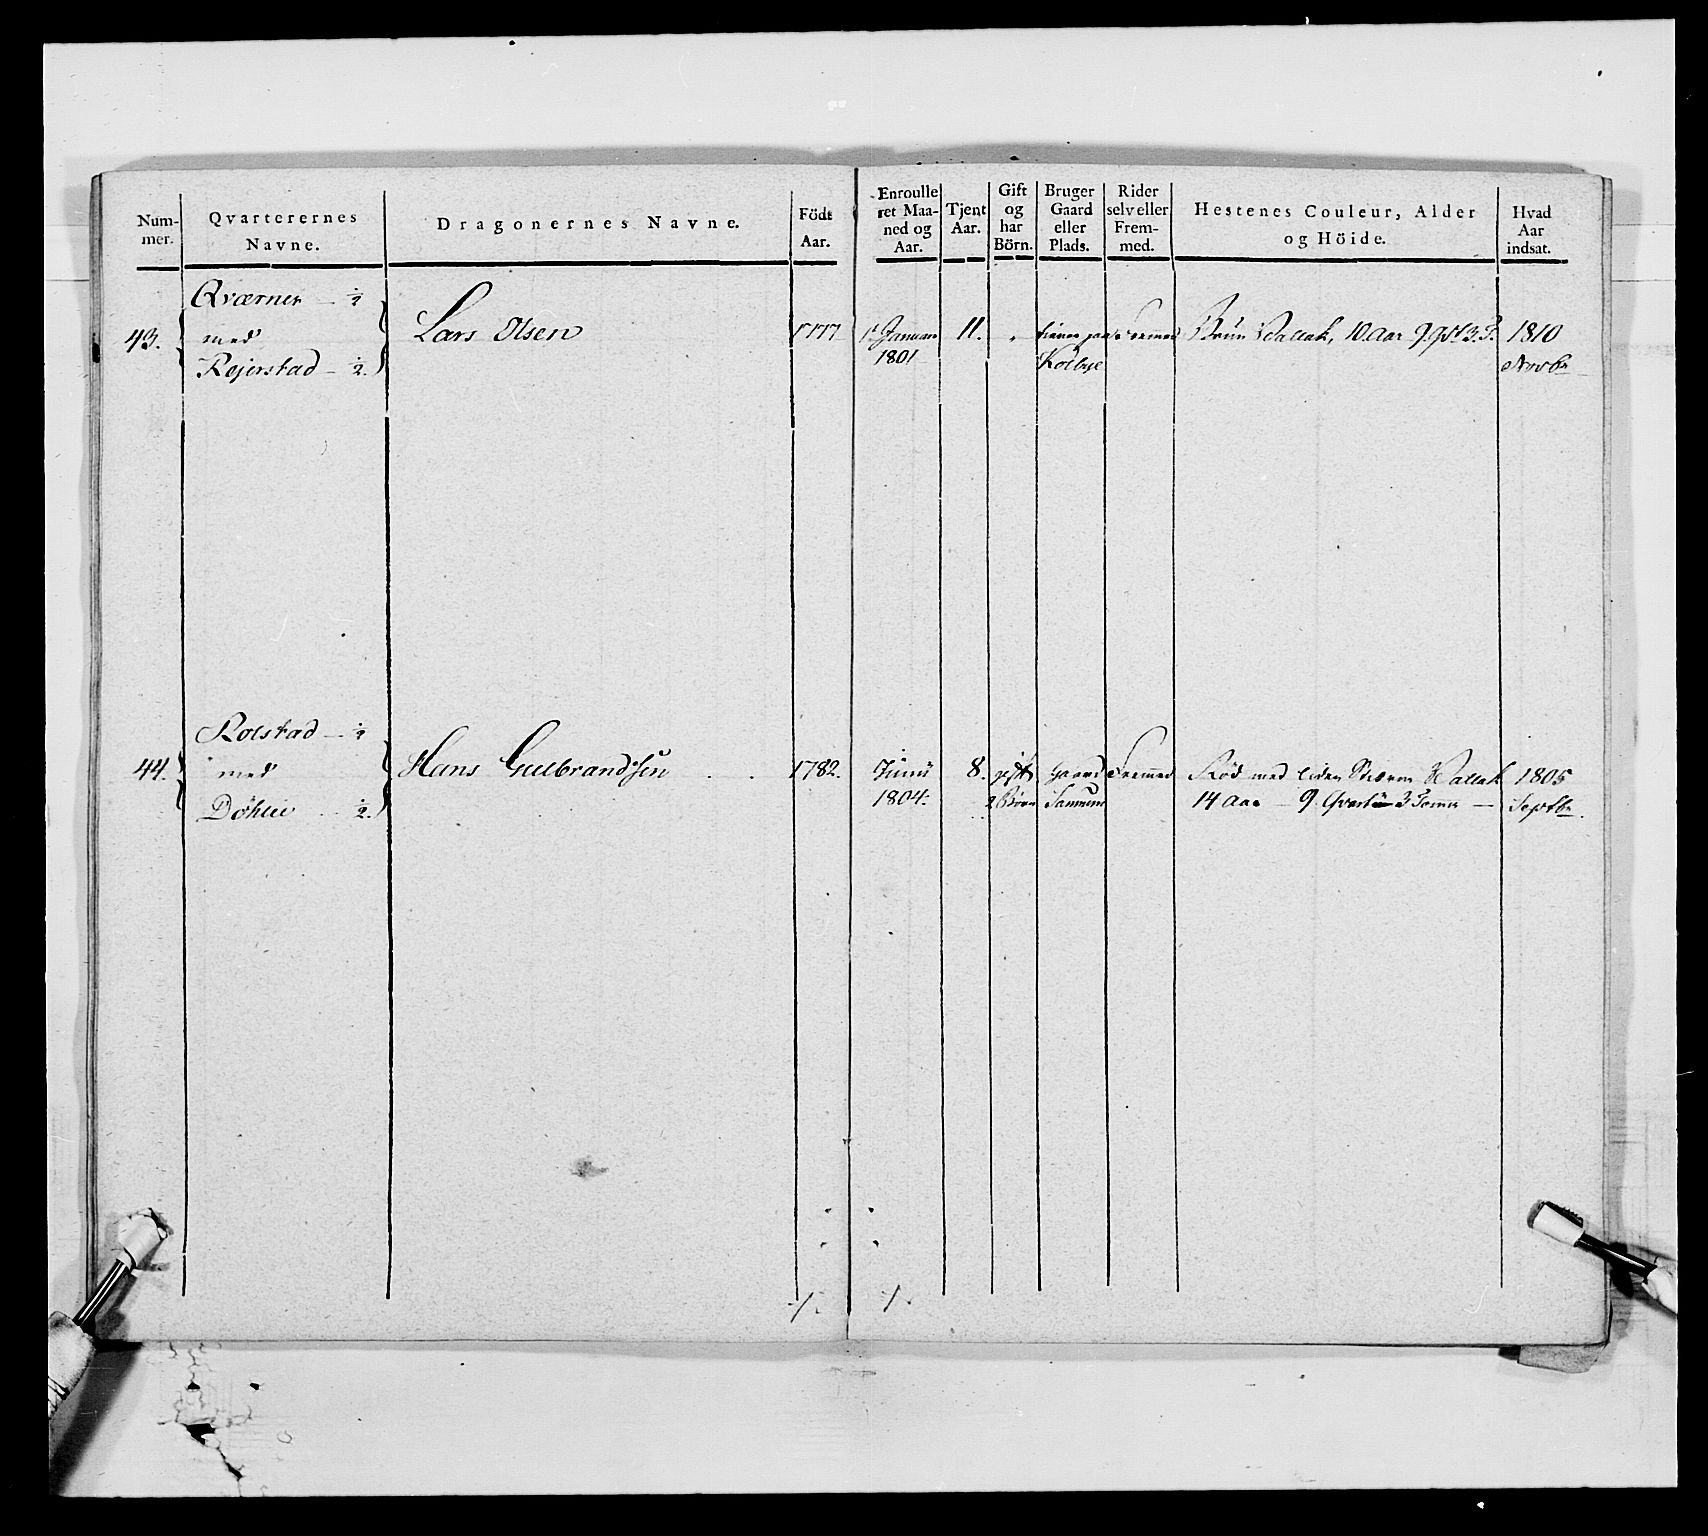 Num-
mer.
Qvarterernes
Navne.
Dragonernes Navne.
Födt
Aar.
Enroulle
ret Maa-
ned og
Aar.
Tjent
Aar.
Gift
og
har
Börn.
Bruger
Gaard
eller
Plads.
Rider
selv eller
Frem-
med.
Hestenes Couleur, Alder
og Höide.
Hvad
Aar
indsat.
43.
Qværner - ½
med
Rejerstad - ½.
Lars Olsen
1777
1t Januar
1801
11.
tiener paa
Kolbye
Fremmed
Brun Vallak, 10 Aar 9 qrt 3. T.
1810
Novbr
44.
Rolstad - ½
med
Döhlie - ½.
Hans Gulbrandsen
1782.
Junii
1804.
8.
gift
2 Börn
Gaard
Fremmed
Röd med liden Stierne Vallak
14 Aar - 9 Qvarter 3 Tomer -
1805
Septbr.